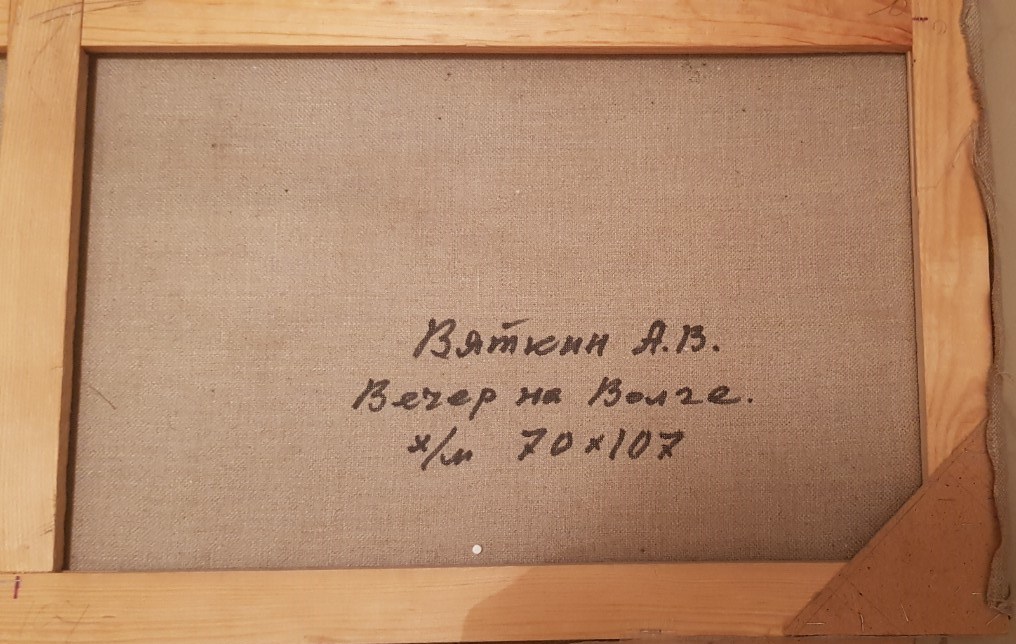 Вяткин А.В.
Вечер на Волге.
х/м 70×107